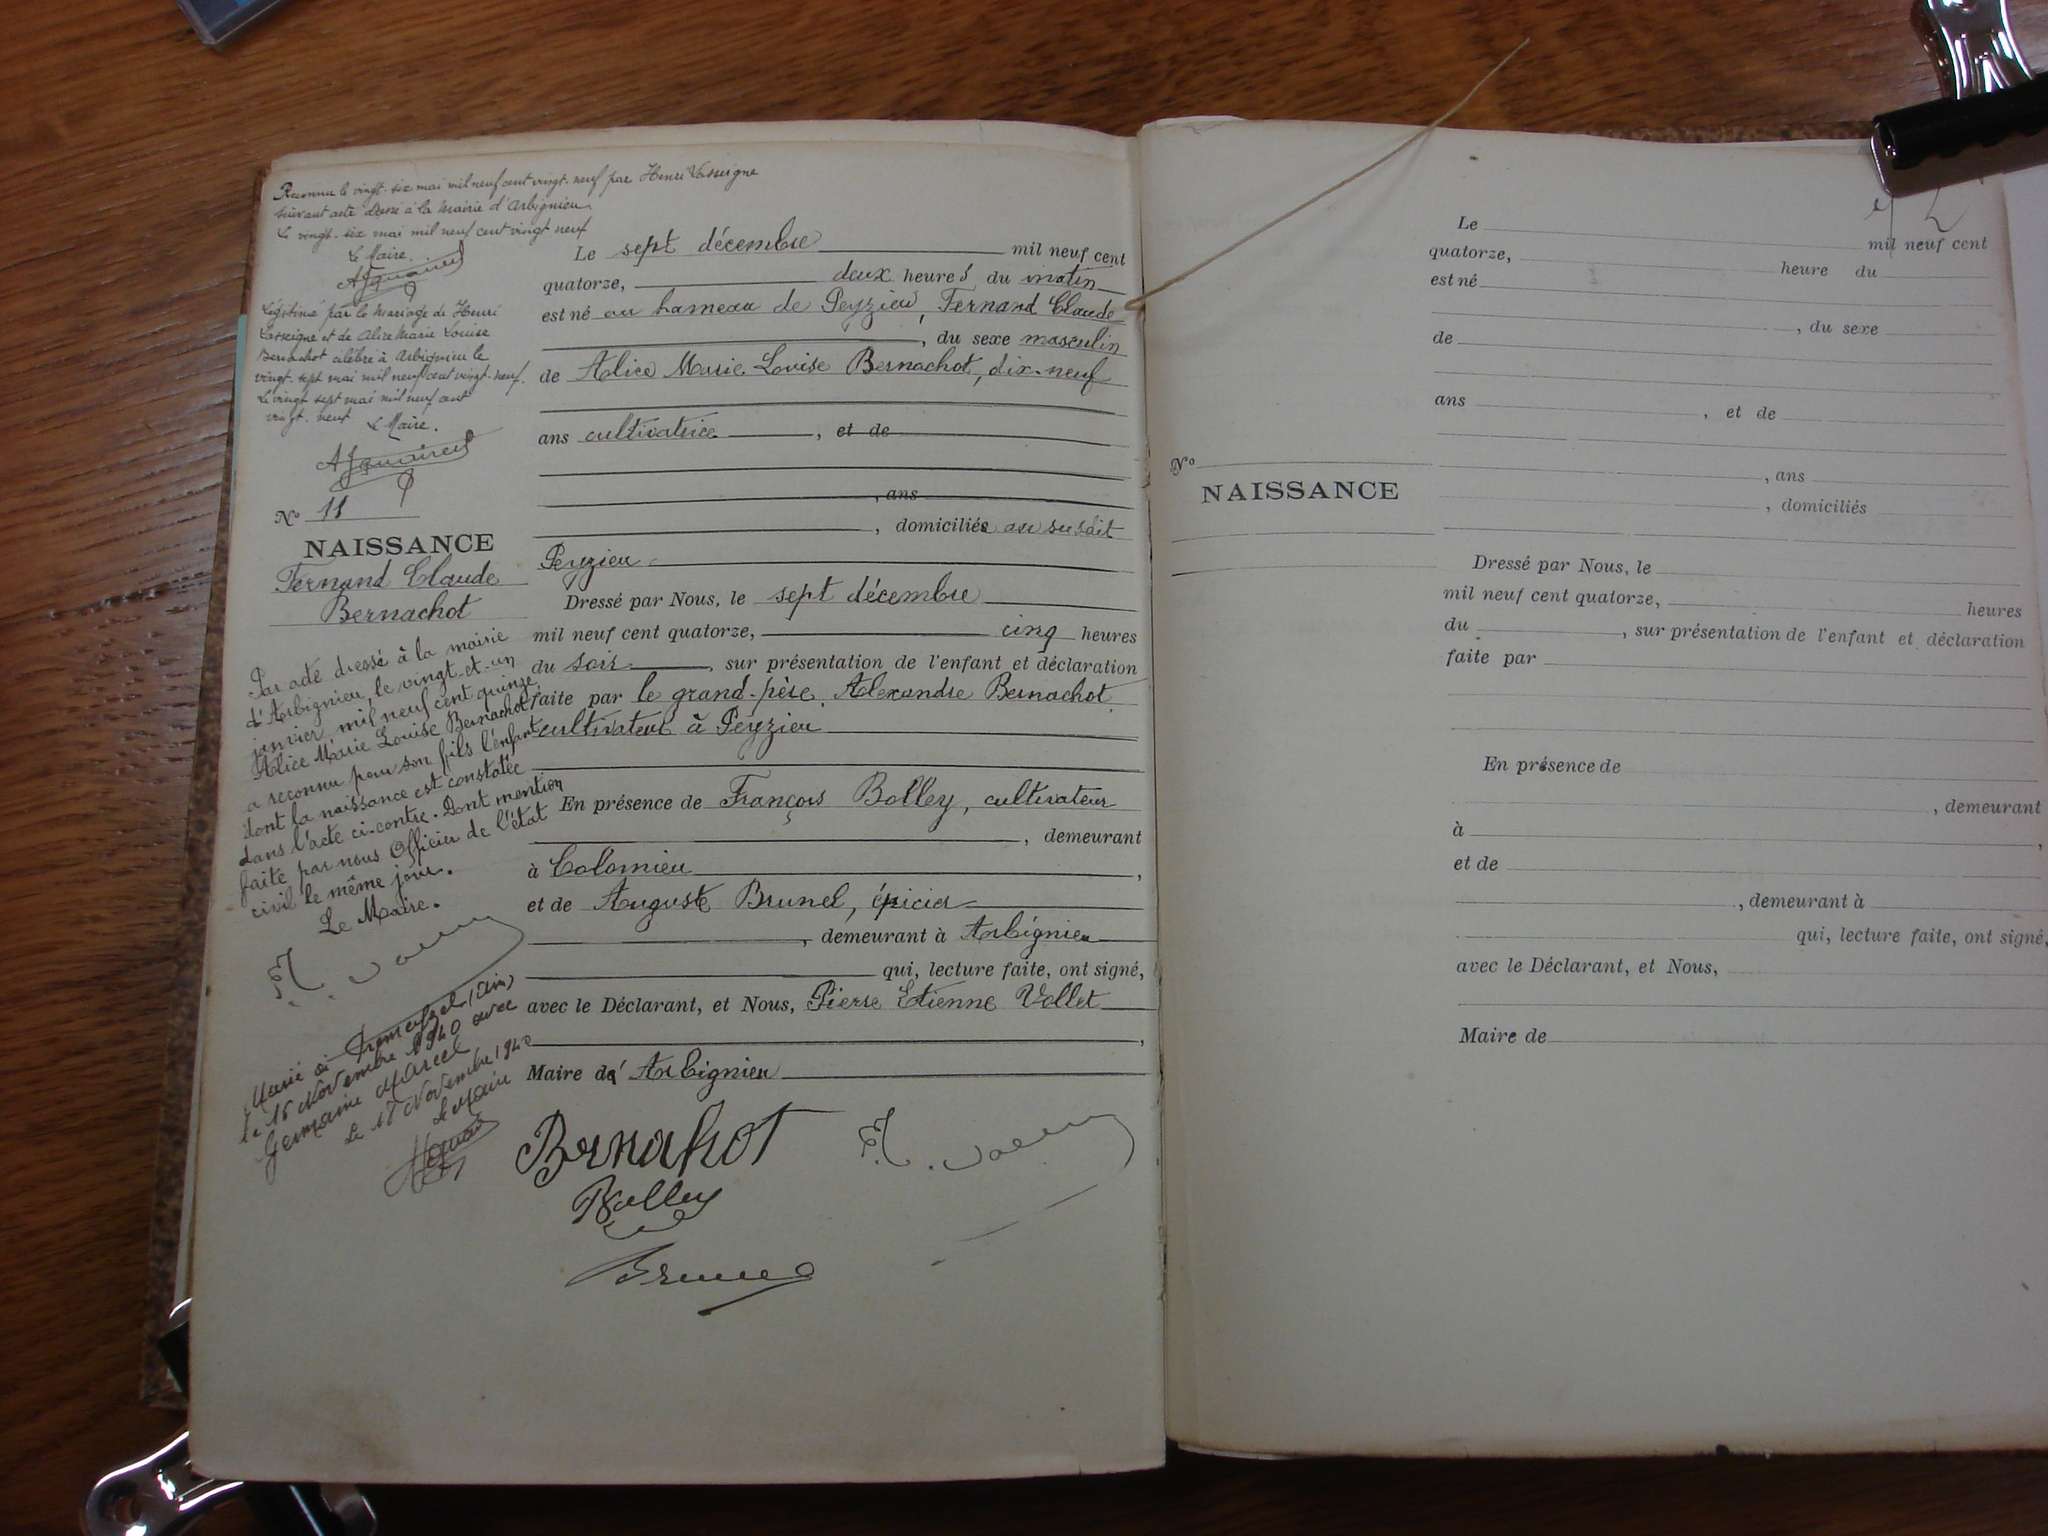 Reconnu le vingt-six mai mil neuf cent vingt-neuf par Henri Vasseigne
suivant acte dressé à la mairie d'Arbignieu
Le vingt-six mai mil neuf cent vingt neuf
Le Maire.
Légitimé par le mariage de Henri
Vasseigne et de Alice Marie Louise
Bernachot célébré à Arbignieu le
vingt-sept mai mil neuf cent vingt-neuf.
Le vingt sept mai mil neuf cent
vingt-neuf
Le Maire.
No 11
NAISSANCE
Fernand Claude
Bernachot
Par acte dressé à la mairie
d'Arbignieu, le vingt-et-un
janvier mil neuf cent quinze
Alice Marie Louise Bernachot
a reconnu pour son fils l'enfant
dont la naissance est constatée
dans l'acte ci-contre. Dont mention
faite par nous Officier de l'état
civil le même jour.
Le Maire.
Marié à (Ain)
le 16 Novembre 1940 avec
Germaine Marcel
Le 18 Novembre 1940
Le Maire
Le sept décembre mil neuf cent
quatorze, deux heures du matin
est né au hameau de Peyzieu, Fernand Claude
, du sexe masculin
de Alice Marie Louise Bernachot, dix-neuf
ans cultivatrice , et de
, ans
, domiciliée au susdit
Peyzieu
Dressé par Nous, le sept décembre
mil neuf cent quatorze, cinq heures
du soir , sur présentation de l'enfant et déclaration
faite par le grand-père, Alexandre Bernachot
cultivateur à Peyzieu
En présence de François Bolley, cultivateur
, demeurant
à Colomieu ,
et de Auguste Brunel, épicier
, demeurant à Arbignieu
qui, lecture faite, ont signé,
avec le Déclarant, et Nous, Pierre Etienne Vollet
,
Maire d' Arbignieu
Bernachot
Bolley
Brunel
Le mil neuf cent
quatorze, heure du
est né
, du sexe
de
ans , et de
, ans
, domiciliés
No
NAISSANCE
Dressé par Nous, le
mil neuf cent quatorze, heures
du , sur présentation de l'enfant et déclaration
faite par
En présence de
, demeurant
à ,
et de
, demeurant à
qui, lecture faite, ont signé,
avec le Déclarant, et Nous,
Maire de